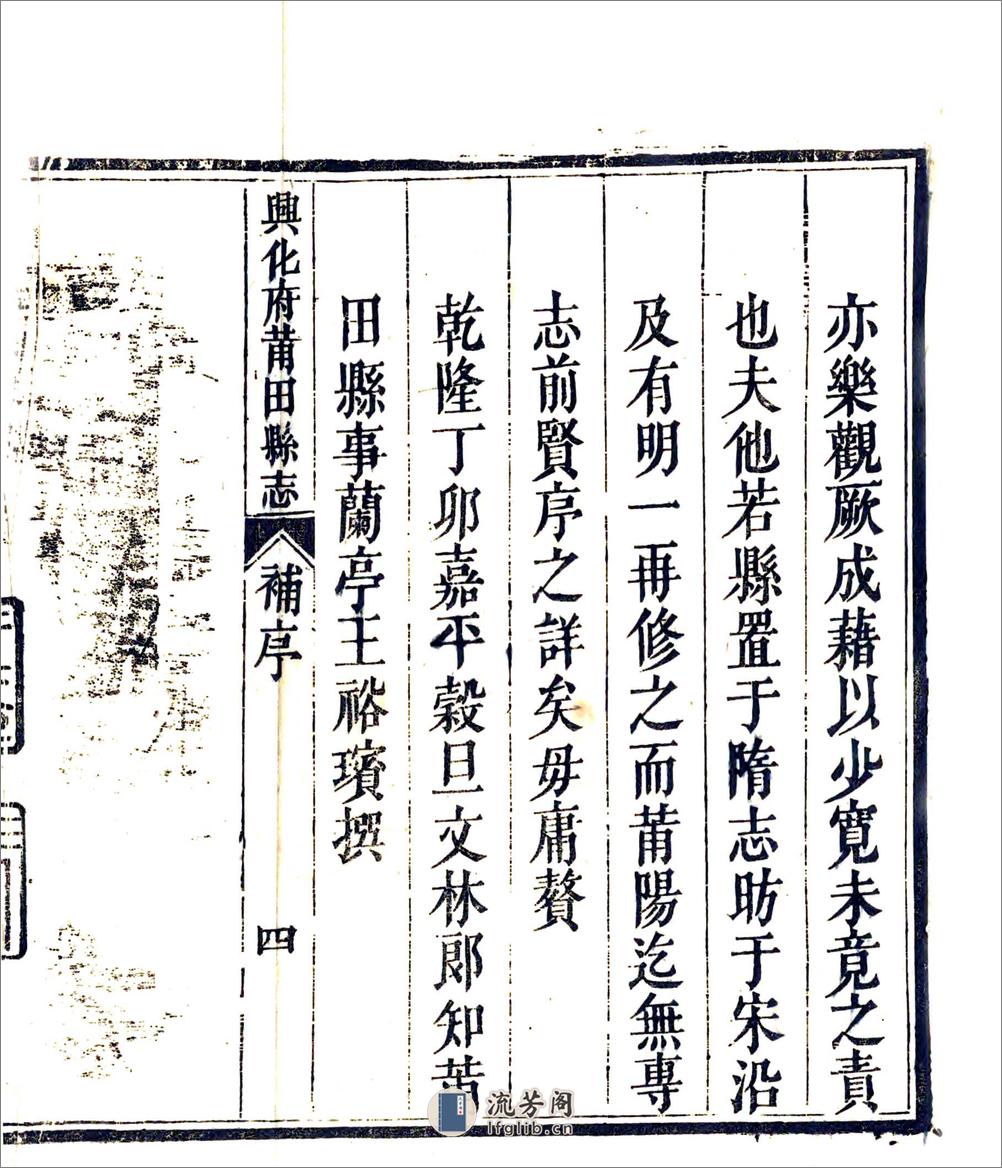 亦樂觀厥成藉以少寛未竟之責
也夫他若縣置于隋志昉于宋沿
及有明一再修之而莆陽迄無專
志前賢序之詳矣毋庸贅
乾隆丁卯嘉平穀旦文林郎知莆
田縣事蘭亭王裕璸撰
興化府莆田縣志
補序
四
流芳阁
lfglib.cn